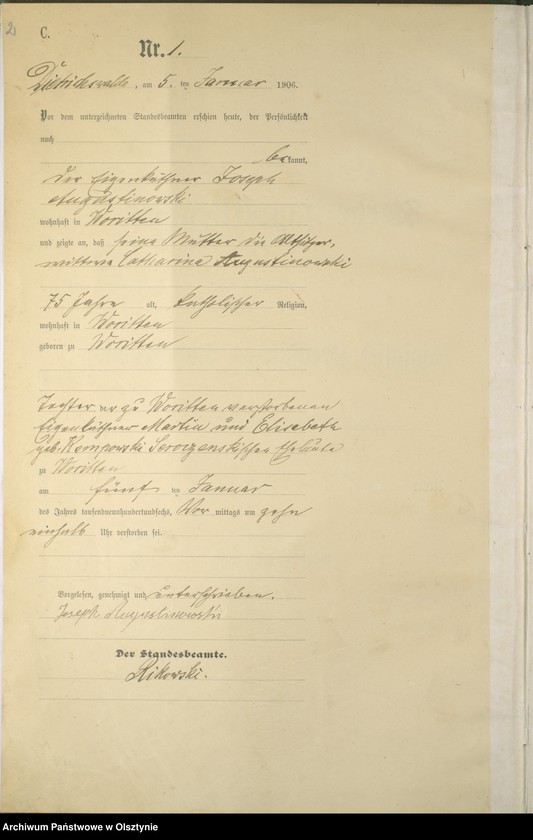 2
C.
Nr. 1.
Dietrichswalde, am 5. ten Januar 1906.
Vor dem unterzeichneten Standesbeamten erschien heute, der Persönlichkeit
nach
bekannt,
der Eigenkäthner Joseph
Augustinowski
wohnhaft in Woritten
und zeigte an, daß seine Mutter die Altsitzer-
wittwe Catharina Augustinowski
75 Jahre alt, katholischer Religion,
wohnhaft in Woritten
geboren zu Woritten
Tochter der zu Woritten verstorbenen
Eigenkäthner Martin und Elisabeth
geb. Eheleute
zu Woritten
am fünf ten Januar
des Jahres tausendneunhundertundsechs, Vor mittags um zehn
einhalb Uhr verstorben sei.
Vorgelesen, genehmigt und unterschrieben.
Joseph Augustinowski
Der Standesbeamte.
Rikowski.
Archiwum Państwowe w Olsztynie